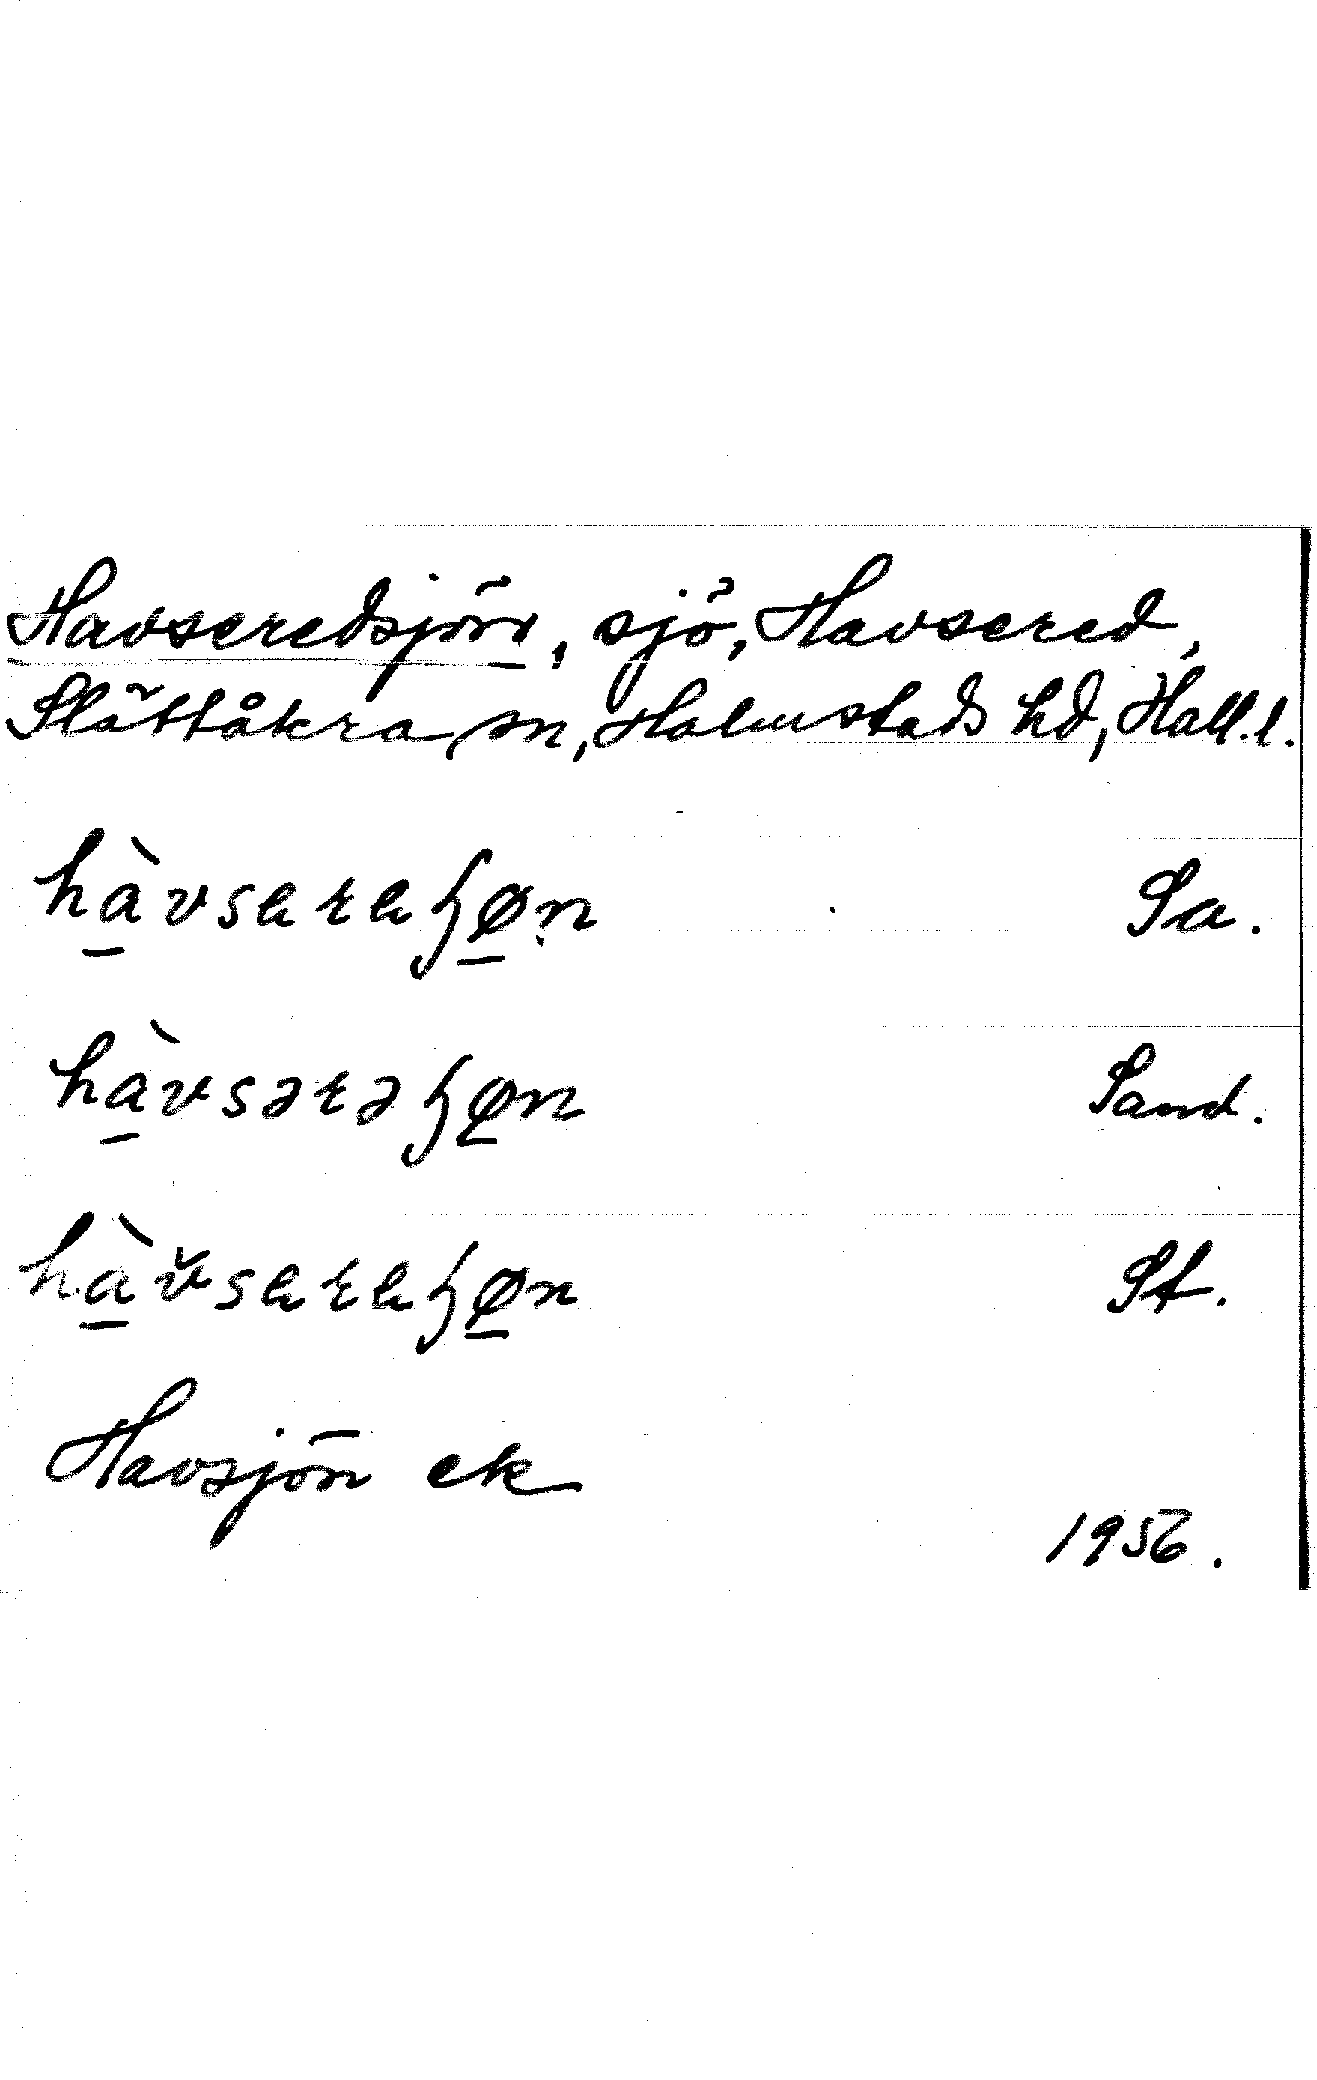 Havseredsjön, sjö, Havsered,
Slättåkra sn, Halmstads hd, Hall.l.
hàvsaraɧøn Sa.
hàvsərəɧøn Sand.
hàvsaraɧøn St.
Havsjön ek
1956.